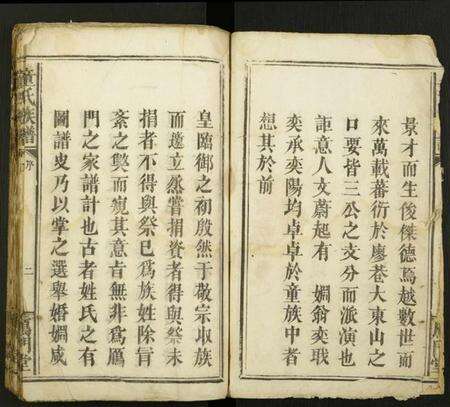 景才而生俊傑德馬越數世而
來萬載蕃衍於廖巷大東山之
口要皆三公之支分而派演也
詎意人文蔚起有 嫺翁奕戢
奕承奕陽均卓卓於童族中者
想其於前
皇臨御之初殷然于敬宗取族
而遂立烝嘗捐資者得與祭未
捐者不得與祭已為族姓除盲
紊之獘而窺其意旨無非為鴈
門之家譜計也古者姓氏之有
圖譜叟乃以掌之選舉婚嫺咸
童氏族譜
序
二
鴈門堂